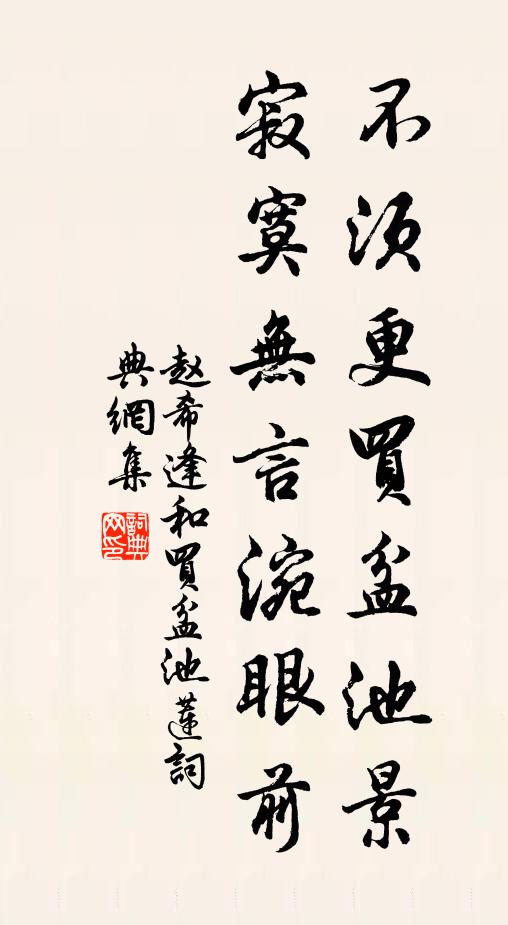 不須更買盆池景
寂寞無言涴眼前
赵希逢和買盆池蓮詞
典網集
詞典
网印